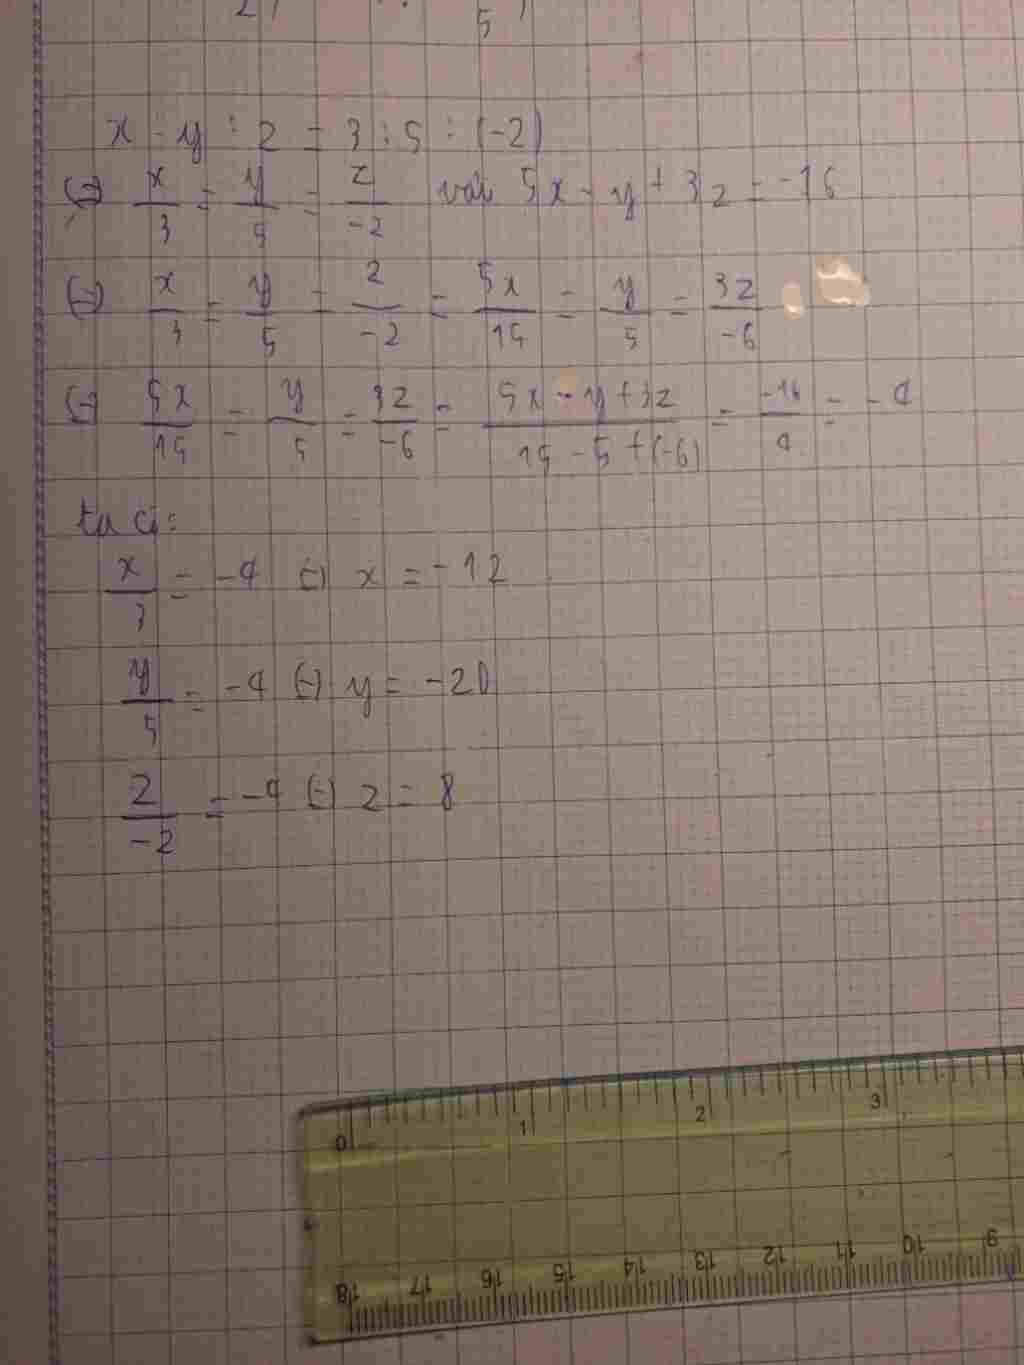 x - y : z = 3 : 5 : (-2)
(=) x/3 = y/5 = z/-2 với 5x - y + 3z = -16
(=) x/3 = y/5 = z/-2 = 5x/15 = y/5 = 3z/-6
(=) 5x/15 = y/5 = 3z/-6 = 5x - y + 3z/15 - 5 + (-6) = -16/4 = -4
ta có:
x/3 = -4 (=) x = -12
y/5 = -4 (=) y = -20
z/-2 = -4 (=) z = 8
0 1 2 3
18 17 16 15 14 13 12 11 10 9